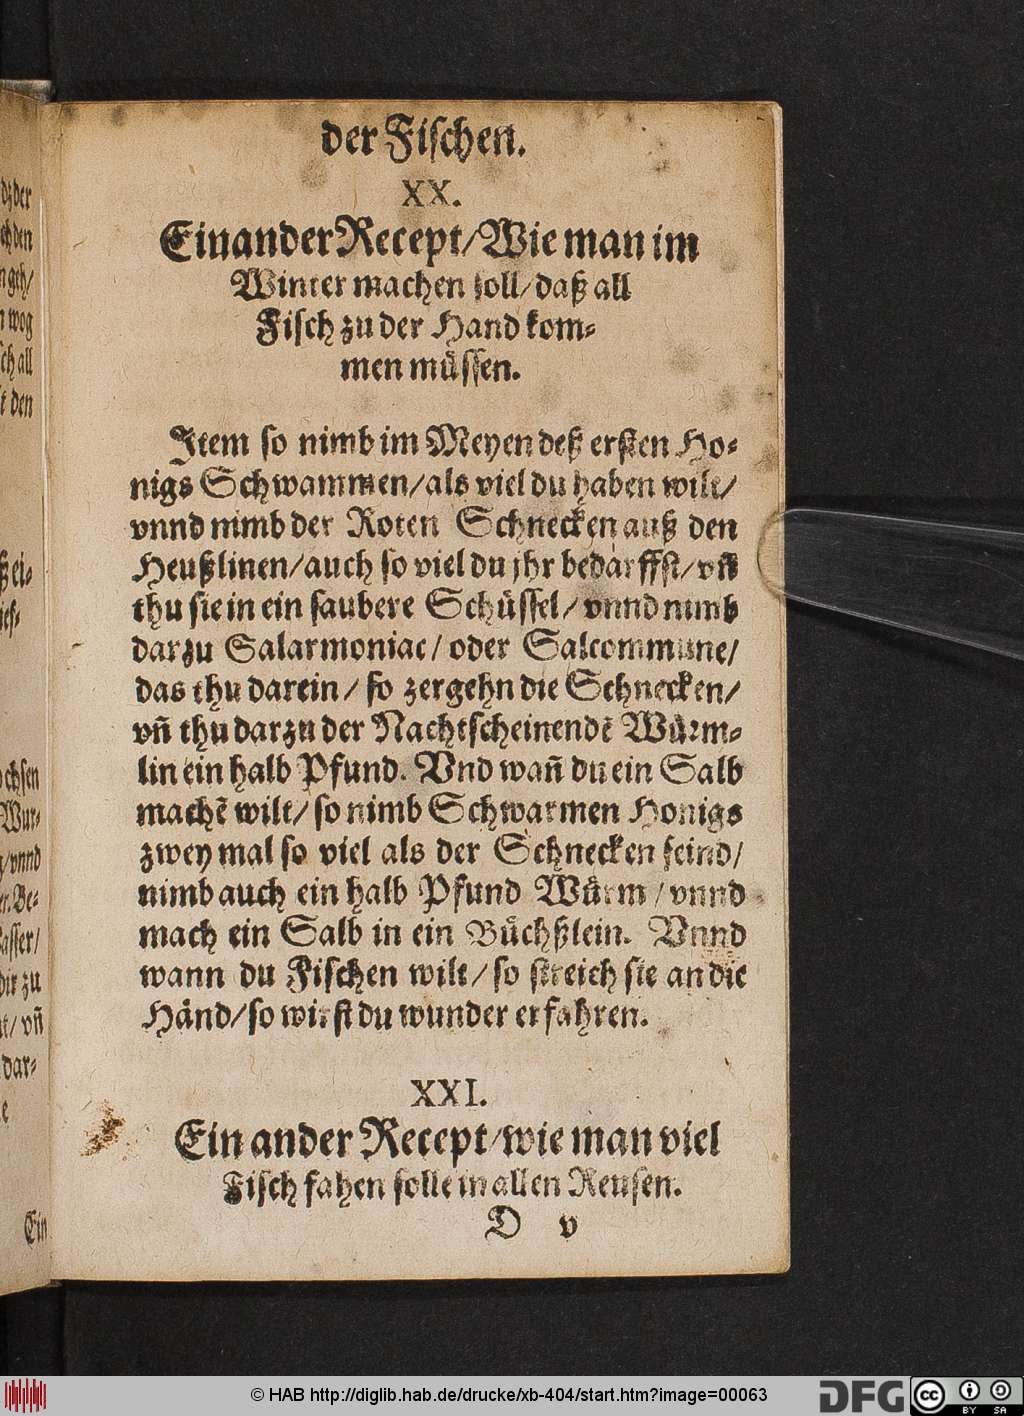 der Fischen.
XX.
Ein ander Recept/ Wie man im
Winter machen soll/ daß all
Fisch zu der Hand kom-
men müssen.
Item so nimb im Meyen deß ersten Ho-
nigs Schwammen/ als viel du haben wilt/
vnnd nimb der Roten Schnecken auß den
Heußlinen/ auch so viel du jhr bedarffst/ vñ
thu sie in ein saubere Schüssel/ vnnd nimb
darzu Salarmoniac/ oder Salcommune/
das thu darein/ so zergehn die Schnecken/
vñ thu darzu der Nachtscheinendē Würm-
lin ein halb Pfund. Vnd wañ du ein Salb
machē wilt/ so nimb Schwarmen Honigs
zwey mal so viel als der Schnecken seind/
nimb auch ein halb Pfund Würm/ vnnd
mach ein Salb in ein Büchßlein. Vnnd
wann du Fischen wilt/ so streich sie an die
Händ/ so wirst du wunder erfahren.
XXI.
Ein ander Recept/ wie man viel
Fisch fahen solle in allen Reusen.
D v
© HAB http://diglib.hab.de/drucke/xb-404/start.htm?image=00063
DFG
cc BY SA